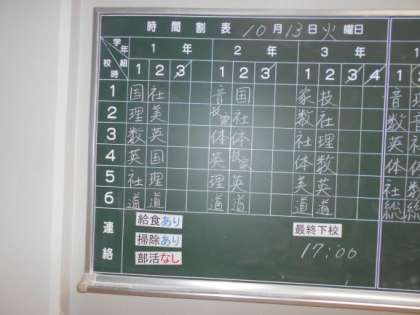 時間割表 10月13日火曜日
学年 1年 2年 3年 1
校時 組 1 2 3 1 2 3 1 2 3 4 1
1 国 社 音 国 家 技 音
2 理 美 技家 社 数 社 数 音
3 数 英 体 体 社 理 英 社
4 英 国 英 技家 体 数 体
5 社 理 理 英 美 英 社
6 道 道 道 道 道 道 総 総
連絡
給食あり 最終下校
掃除あり 17:00
部活なし